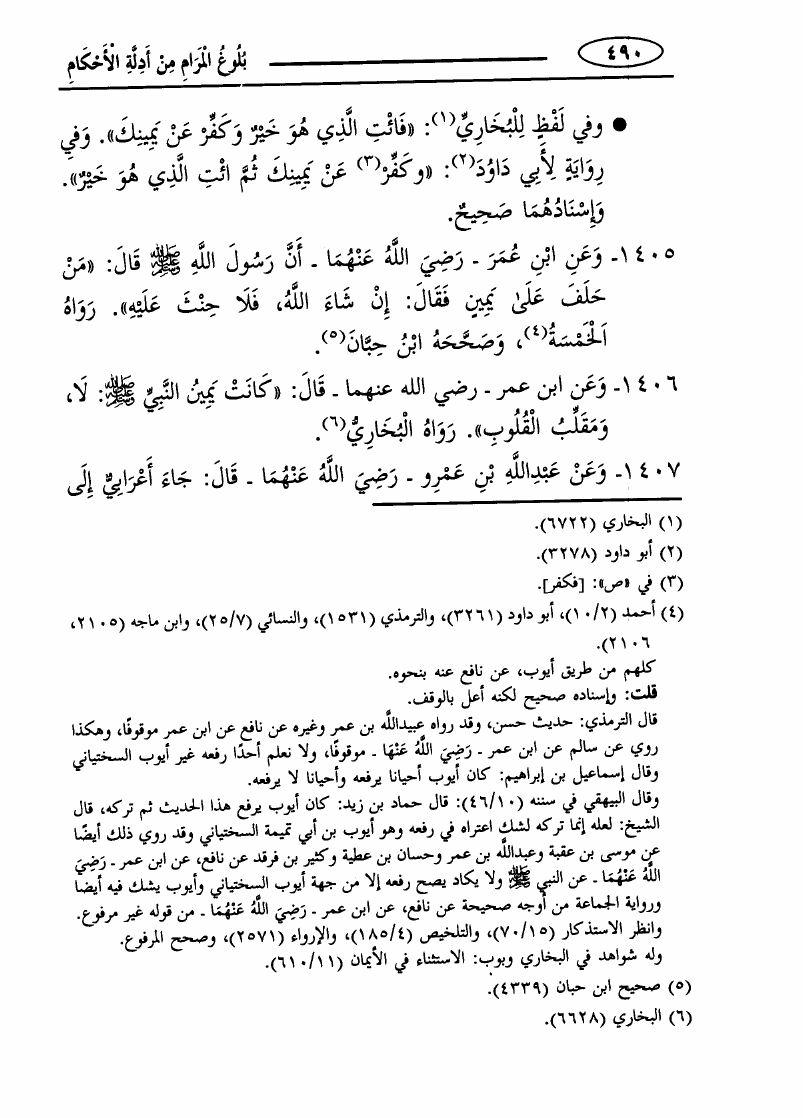 ٤٩٠ بُلُوغُ الْمَرَامِ مِنْ أَدِلَّةِ الْأَحْكَامِ
● وفي لَفْظٍ لِلْبُخَارِيِّ(١): «فَائْتِ الَّذِي هُوَ خَيْرٌ وَكَفِّرْ عَنْ يَمِينِكَ». وَفِي
رِوَايَةٍ لِأَبِي دَاوُدَ(٢): «وكَفِّرْ(٣) عَنْ يَمِينِكَ ثُمَّ ائْتِ الَّذِي هُوَ خَيْرٌ».
وَإِسْنَادُهُمَا صَحِيحٌ.
١٤٠٥ـ وَعَنِ ابْنِ عُمَرَ ـ رَضِيَ اللَّهُ عَنْهُمَا ـ أَنَّ رَسُولَ اللَّهِ ﷺ قَالَ: «مَنْ
حَلَفَ عَلَىٰ يَمِينٍ فَقَالَ: إِنْ شَاءَ اللَّهُ، فَلَا حِنْثَ عَلَيْهِ». رَوَاهُ
اَلْخَمْسَةُ(٤)، وَصَحَّحَهُ ابْنُ حِبَّانَ(٥).
١٤٠٦ـ وَعَن ابن عمر ـ رضي الله عنهما ـ قَالَ: «كَانَتْ يَمِينُ النَّبِيِّ ﷺ: لَا،
وَمَقَلِّبُ الْقُلُوبِ». رَوَاهُ الْبُخَارِيُّ(٦).
١٤٠٧ـ وَعَنْ عَبْدِاللَّهِ بْنِ عَمْرِو ـ رَضِيَ اللَّهُ عَنْهُمَا ـ قَالَ: جَاءَ أَعْرَابِيٌّ إِلَى
(١) البخاري (٦٧٢٢).
(٢) أبو داود (٣٢٧٨).
(٣) في «ص»: [فكفر].
(٤) أحمد (١٠/٢)، أبو داود (٣٢٦١)، والترمذي (١٥٣١)، والنسائي (٢٥/٧)، وابن ماجه (٢١٠٥،
٢١٠٦).
كلهم من طريق أيوب، عن نافع عنه بنحوه.
قلت: وإسناده صحيح لكنه أعل بالوقف.
قال الترمذي: حديث حسن، وقد رواه عبيدالله بن عمر وغيره عن نافع عن ابن عمر موقوفًا، وهكذا
روي عن سالم عن ابن عمر ـ رَضِيَ اللَّهُ عَنْهَا ـ موقوفًا، ولا نعلم أحدًا رفعه غير أيوب السختياني
وقال إسماعيل بن إبراهيم: كان أيوب أحيانا يرفعه وأحيانا لا يرفعه.
وقال البيهقي في سننه (٤٦/١٠): قال حماد بن زيد: كان أيوب يرفع هذا الحديث ثم تركه، قال
الشيخ: لعله إنما تركه لشك اعتراه في رفعه وهو أيوب بن أبي تميمة السختياني وقد روي ذلك أيضًا
عن موسى بن عقبة وعبدالله بن عمر وحسان بن عطية وكثير بن فرقد عن نافع، عن ابن عمر ـ رَضِيَ
اللَّهُ عَنْهُمَا ـ عن النبي ﷺ ولا يكاد يصح رفعه إلا من جهة أيوب السختياني وأيوب يشك فيه أيضا
ورواية الجماعة من أوجه صحيحة عن نافع، عن ابن عمر ـ رَضِيَ اللَّهُ عَنْهُمَا ـ من قوله غير مرفوع.
وانظر الاستذكار (٧٠/١٥)، والتلخيص (١٨٥/٤)، والإرواء (٢٥٧١)، وصحح المرفوع.
وله شواهد في البخاري وبوب: الاستثناء في الأيمان (٦١٠/١١).
(٥) صحيح ابن حبان (٤٣٣٩).
(٦) البخاري (٦٦٢٨).